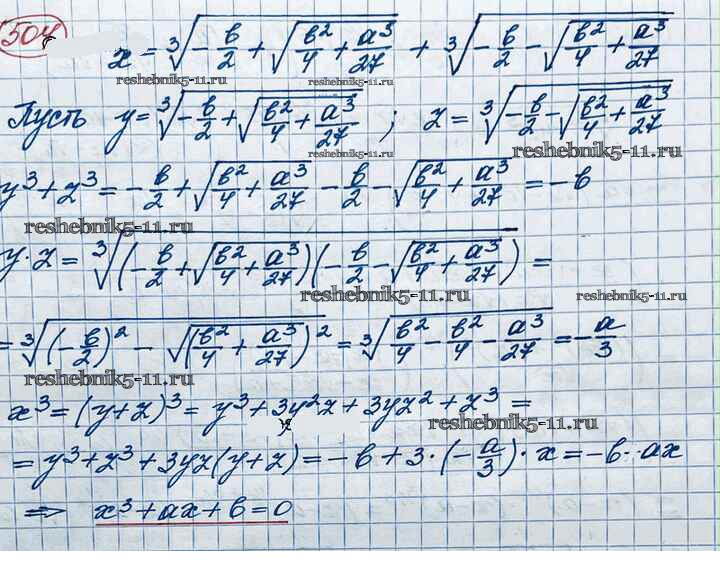 504
x = ∛(-в/2 + √(в²/4 + a³/27)) + ∛(-в/2 - √(в²/4 + a³/27))
reshebnik5-11.ru reshebnik5-11.ru
Пусть y = ∛(-в/2 + √(в²/4 + a³/27)) ; z = ∛(-в/2 - √(в²/4 + a³/27))
reshebnik5-11.ru reshebnik5-11.ru
y³ + z³ = -в/2 + √(в²/4 + a³/27) - в/2 - √(в²/4 + a³/27) = -в
reshebnik5-11.ru
y·z = ∛((-в/2 + √(в²/4 + a³/27))(-в/2 - √(в²/4 + a³/27))) =
reshebnik5-11.ru reshebnik5-11.ru
= ∛((-в/2)² - √(в²/4 + a³/27)²) = ∛(в²/4 - в²/4 - a³/27) = -a/3
reshebnik5-11.ru
x³ = (y+z)³ = y³ + 3y²z + 3yz² + z³ =
reshebnik5-11.ru
= y³ + z³ + 3yz(y+z) = -в + 3·(-a/3)·x = -в - ax
⇒ x³ + ax + в = 0